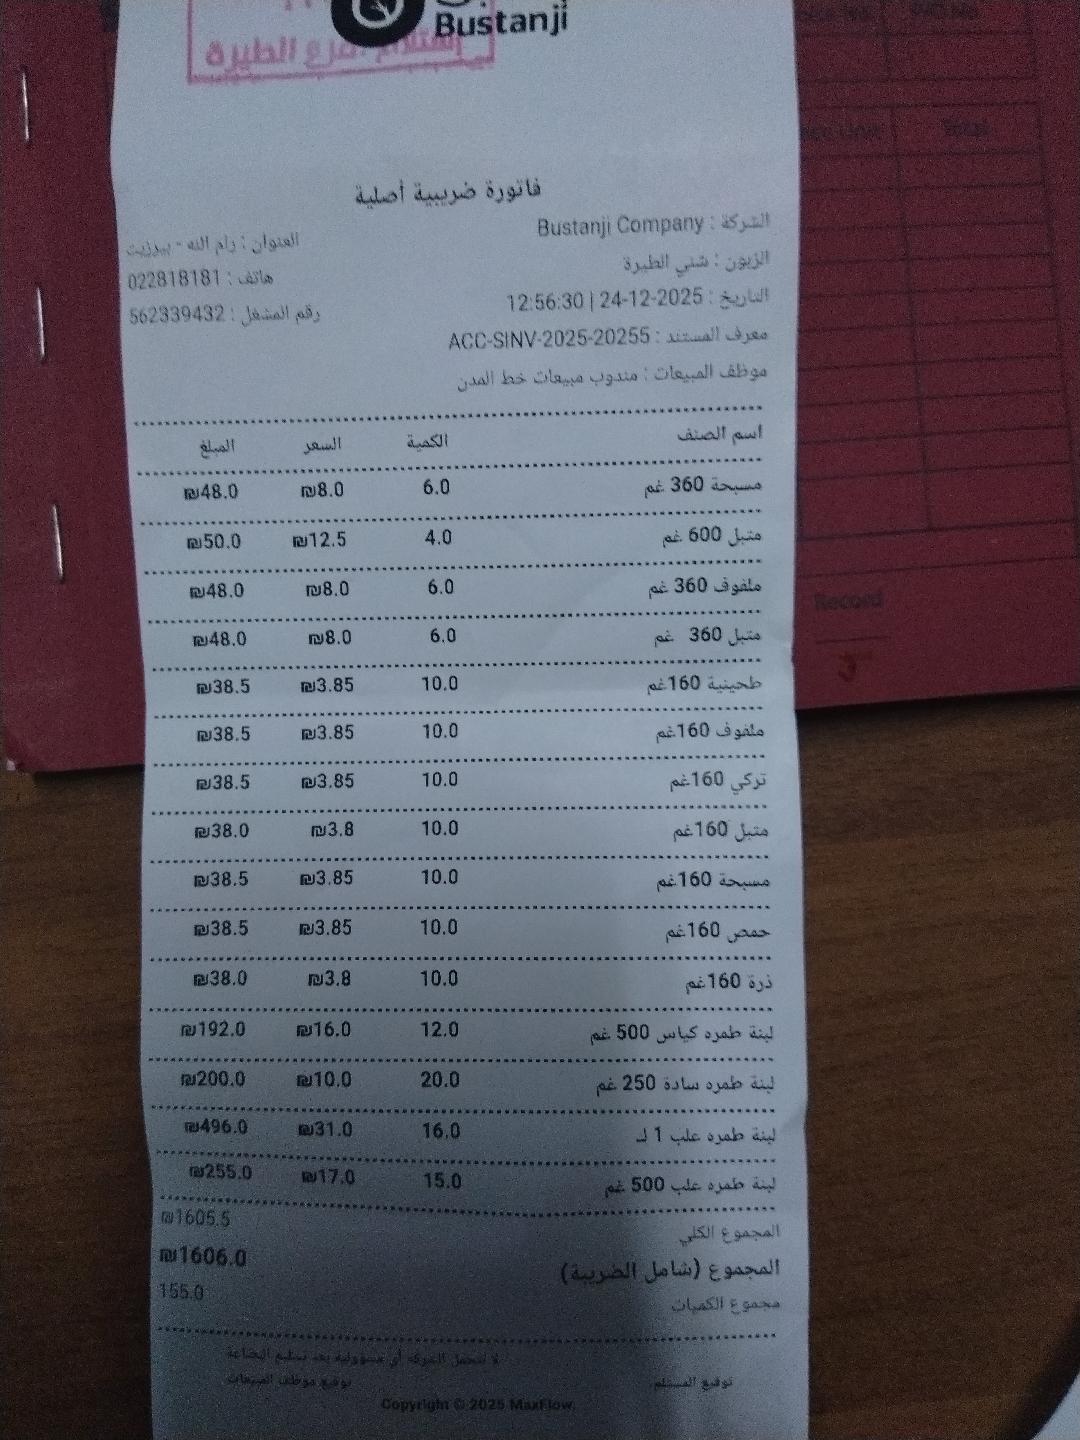 Bustanji
إستلام فرع الطيرة
فاتورة ضريبية أصلية
الشركة : Bustanji Company
العنوان : رام الله - بيرزيت
الزبون : شني الطيرة
هاتف : 022818181
التاريخ : 24-12-2025 | 12:56:30
رقم المشغل : 562339432
معرف المستند : ACC-SINV-2025-20255
موظف المبيعات : مندوب مبيعات خط المدن
اسم الصنف الكمية السعر المبلغ
مسبحة 360 غم 6.0 ₪8.0 ₪48.0
متبل 600 غم 4.0 ₪12.5 ₪50.0
ملفوف 360 غم 6.0 ₪8.0 ₪48.0
متبل 360 غم 6.0 ₪8.0 ₪48.0
طحينية 160غم 10.0 ₪3.85 ₪38.5
ملفوف 160غم 10.0 ₪3.85 ₪38.5
تركي 160غم 10.0 ₪3.85 ₪38.5
متبل 160غم 10.0 ₪3.8 ₪38.0
مسبحة 160غم 10.0 ₪3.85 ₪38.5
حمص 160غم 10.0 ₪3.85 ₪38.5
ذرة 160غم 10.0 ₪3.8 ₪38.0
لبنة طمره كياس 500 غم 12.0 ₪16.0 ₪192.0
لبنة طمره سادة 250 غم 20.0 ₪10.0 ₪200.0
لبنة طمره علب 1 لـ 16.0 ₪31.0 ₪496.0
لبنة طمره علب 500 غم 15.0 ₪17.0 ₪255.0
المجموع الكلي ₪1605.5
المجموع (شامل الضريبة) ₪1606.0
مجموع الكميات 155.0
لا تتحمل الشركة أي مسؤولية بعد تسليم البضاعة
توقيع المستلم توقيع موظف المبيعات
Copyright © 2025 MaxFlow.
Total
Record